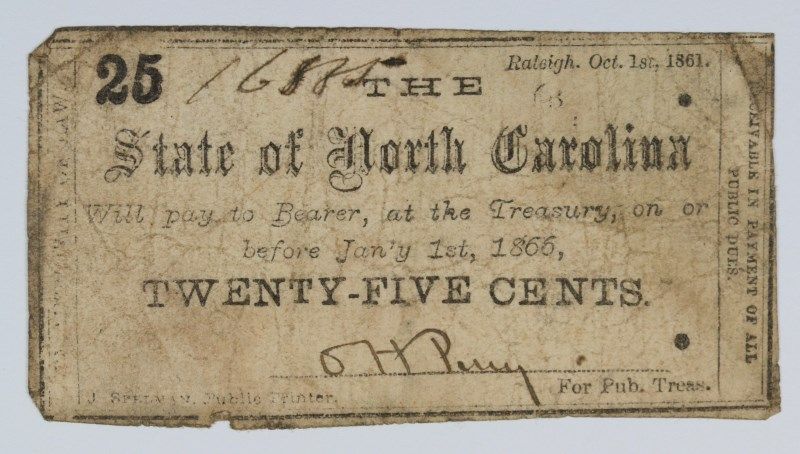 25
16885
Raleigh. Oct. 1st, 1861.
THE
State of North Carolina
Will pay to Bearer, at the Treasury, on or
before Jan'y 1st, 1866,
TWENTY-FIVE CENTS.
For Pub. Treas.
J. SPELMAN, Public Printer.
OF LAW
IN PAYMENT OF ALL
PUBLIC DUES.